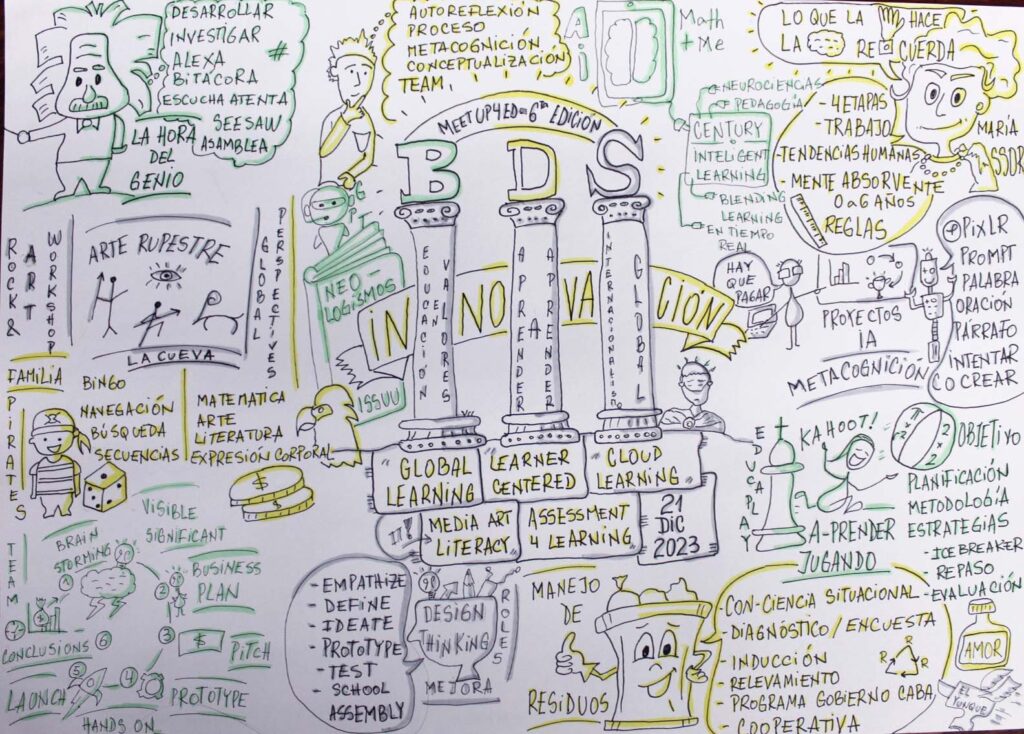 DESARROLLAR
INVESTIGAR
ALEXA #
BITÁCORA
ESCUCHA ATENTA
SEESAW
ASAMBLEA
LA HORA
DEL
GENIO
AUTOREFLEXIÓN
PROCESO
METACOGNICIÓN
CONCEPTUALIZACIÓN
TEAM
Ai
Math
+ Me
NEUROCIENCIAS
PEDAGOGÍA
CENTURY
INTELIGENT
LEARNING
BLENDING
LEARNING
EN TIEMPO
REAL
LO QUE LA HACE
LA RECUERDA
- 4 ETAPAS
- TRABAJO
- TENDENCIAS HUMANAS
- MENTE ABSORVENTE
0 a 6 AÑOS
REGLAS
MARÍA
SSORI
MEETUP4ED = 6ª EDICIÓN
BDS
EDUCACIÓN
EN VALORES
APRENDER
A
APRENDER
INTERNACIONALISMO
GLOBAL
INNOVACIÓN
ROCK &
ART
WORKSHOP
ARTE RUPESTRE
LA CUEVA
GLOBAL
PERSPECTIVES
NEO-
LOGISMOS
ISSUU
HAY
QUE
PAGAR
PROYECTOS
IA
METACOGNICIÓN
PIXLR
PROMPT
PALABRA
ORACIÓN
PÁRRAFO
INTENTAR
CO CREAR
FAMILIA
PIRATES
BINGO
NAVEGACIÓN
BÚSQUEDA
SECUENCIAS
MATEMATICA
ARTE
LITERATURA
EXPRESIÓN CORPORAL
"GLOBAL
LEARNING"
"LEARNER
CENTERED"
"CLOUD
LEARNING"
IT!
"MEDIA ART
LITERACY"
"ASSESSMENT
4 LEARNING"
21
DIC
2023
EDUCAPLAY
KAHOOT!
A-PRENDER
JUGANDO
2 x 2
OBJETIVO
PLANIFICACIÓN
METODOLOGÍA
ESTRATEGIAS
- ICEBREAKER
- REPASO
- EVALUACIÓN
TEAM
BRAIN
STORMING
VISIBLE
SIGNIFICANT
1
2
BUSINESS
PLAN
3
PITCH
4
PROTOTYPE
5
LAUNCH
HANDS ON
6
CONCLUSIONS
- EMPATHIZE
- DEFINE
- IDEATE
- PROTOTYPE
- TEST
- SCHOOL
ASSEMBLY
DESIGN
THINKING
MEJORA
ROLES
MANEJO
DE
RESIDUOS
- CON-CIENCIA SITUACIONAL
- DIAGNÓSTICO / ENCUESTA
- INDUCCIÓN
- RELEVAMIENTO
- PROGRAMA GOBIERNO CABA
- COOPERATIVA
R
R R
AMOR
EL
YUNQUE